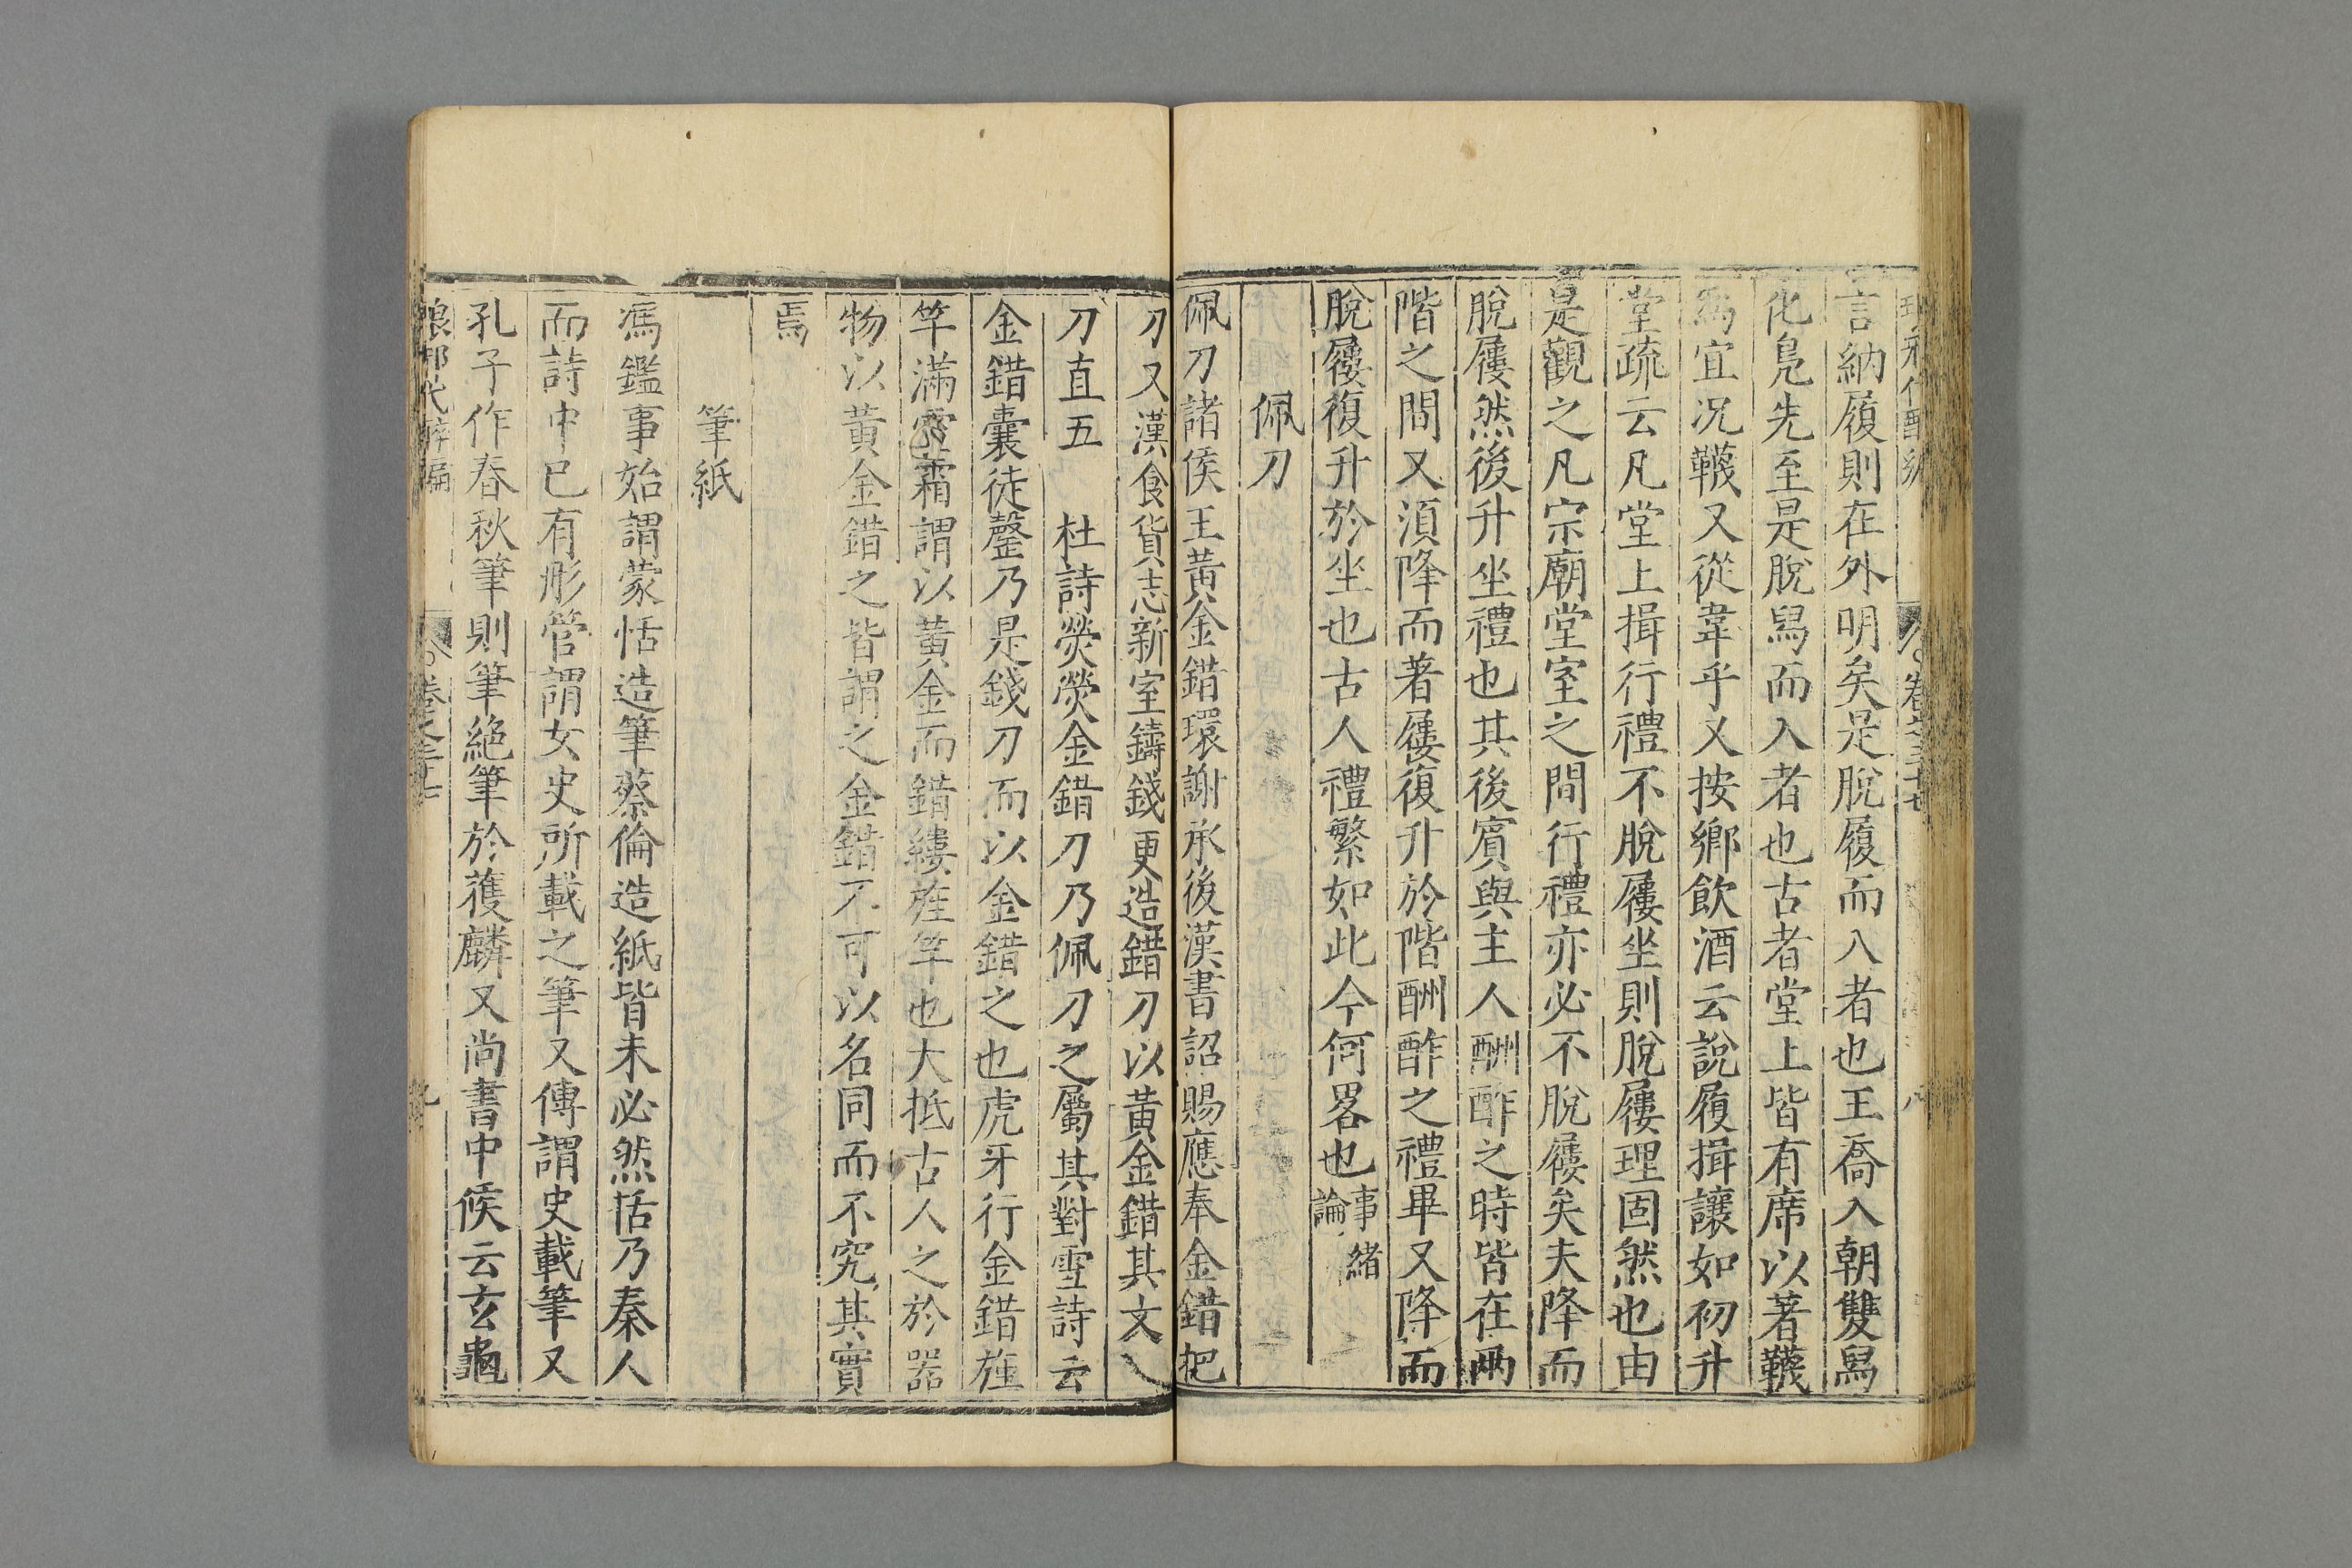 言納履則在外明矣是脫履而入者也王喬入朝雙舄
化鳬先至是脫舄而入者也古者堂上皆有席以著韈
爲宜况韈又從韋乎又按鄉飲酒云說履揖讓如初升
堂疏云凡堂上揖行禮不脫屨坐則脫屨理固然也由
是觀之凡宗廟堂室之間行禮亦必不脫屨矣夫降而
脫屨然後升坐禮也其後賓與主人酬酢之時皆在兩
階之間又湏降而著屨復升於階酬酢之禮畢又降而
脫屨復升於坐也古人禮繁如此今何畧也事緒論
佩刀
佩刀諸侯王黃金錯環謝承後漢書詔賜應奉金錯把
刀又漢食貨志新室鑄錢更造錯刀以黃金錯其文乀
刀直五 杜詩熒熒金錯刀乃佩刀之屬其對雪詩云
金錯囊徒罄乃是錢刀而以金錯之也虎牙行金錯旌
竿滿雲霜謂以黃金而錯縷旌竿也大抵古人之於器
物以黃金錯之皆謂之金錯不可以名同而不究其實
焉
筆紙
馮鑑事始謂蒙恬造筆蔡倫造紙皆未必然恬乃秦人
而詩中已有彤管謂女史所載之筆又傳謂史載筆又
孔子作春秋筆則筆絕筆於獲麟又尚書中候云玄龜
琅邪代醉編 卷之三十七 九